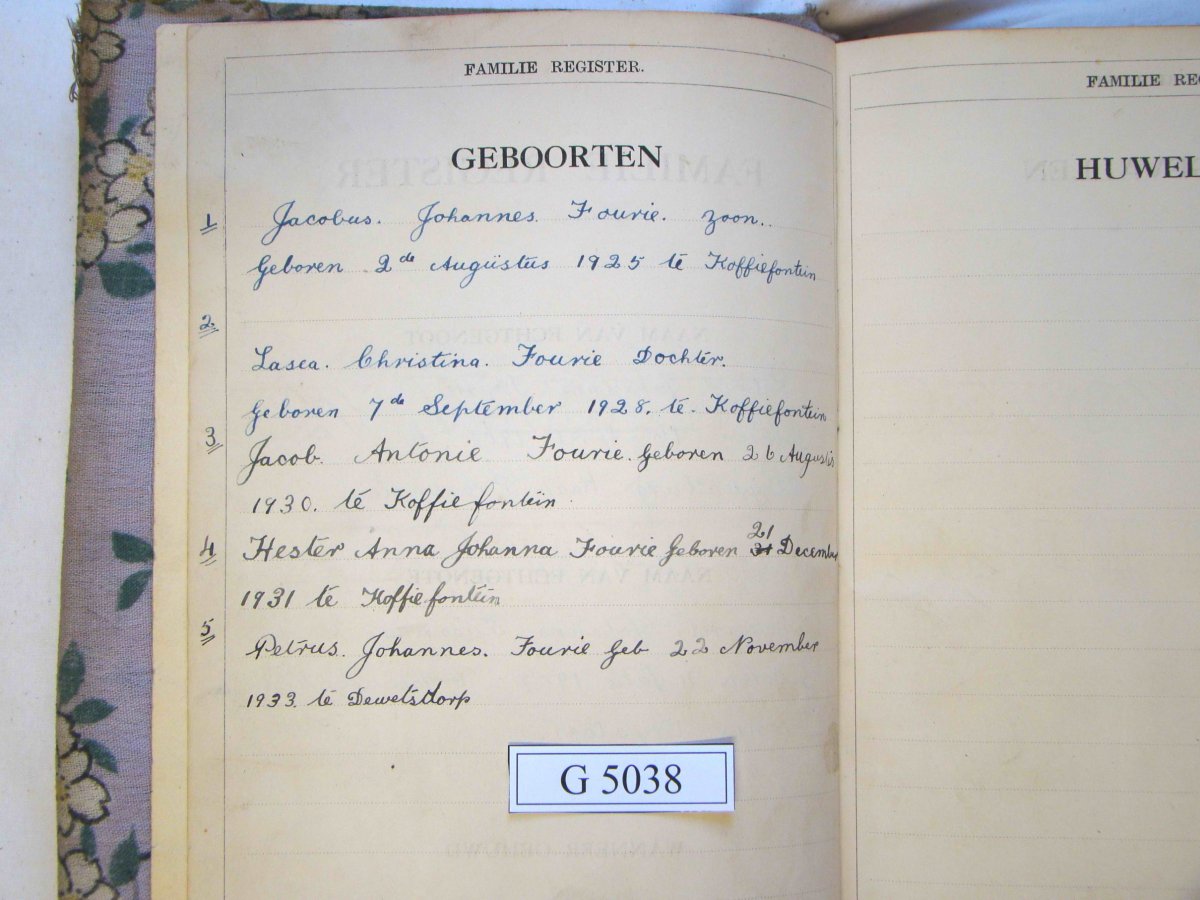 FAMILIE REGISTER.
GEBOORTEN
1 Jacobus. Johannes. Fourie. zoon..
Geboren 2de Augüstus 1925 te Koffiefontein
2
Lasea. Christina. Fourie Dochter.
Geboren 7de September 1928. te. Koffiefontein
3 Jacob. Antonie Fourie. Geboren 26 Augustus
1930. te Koffiefontein
4 Hester Anna Johanna Fourie Geboren 21 December
1931 te Koffiefontein
5 Petrus. Johannes. Fourie Geb 22 November
1933. te Dewetsdorp
G 5038
FAMILIE REG
HUWEL